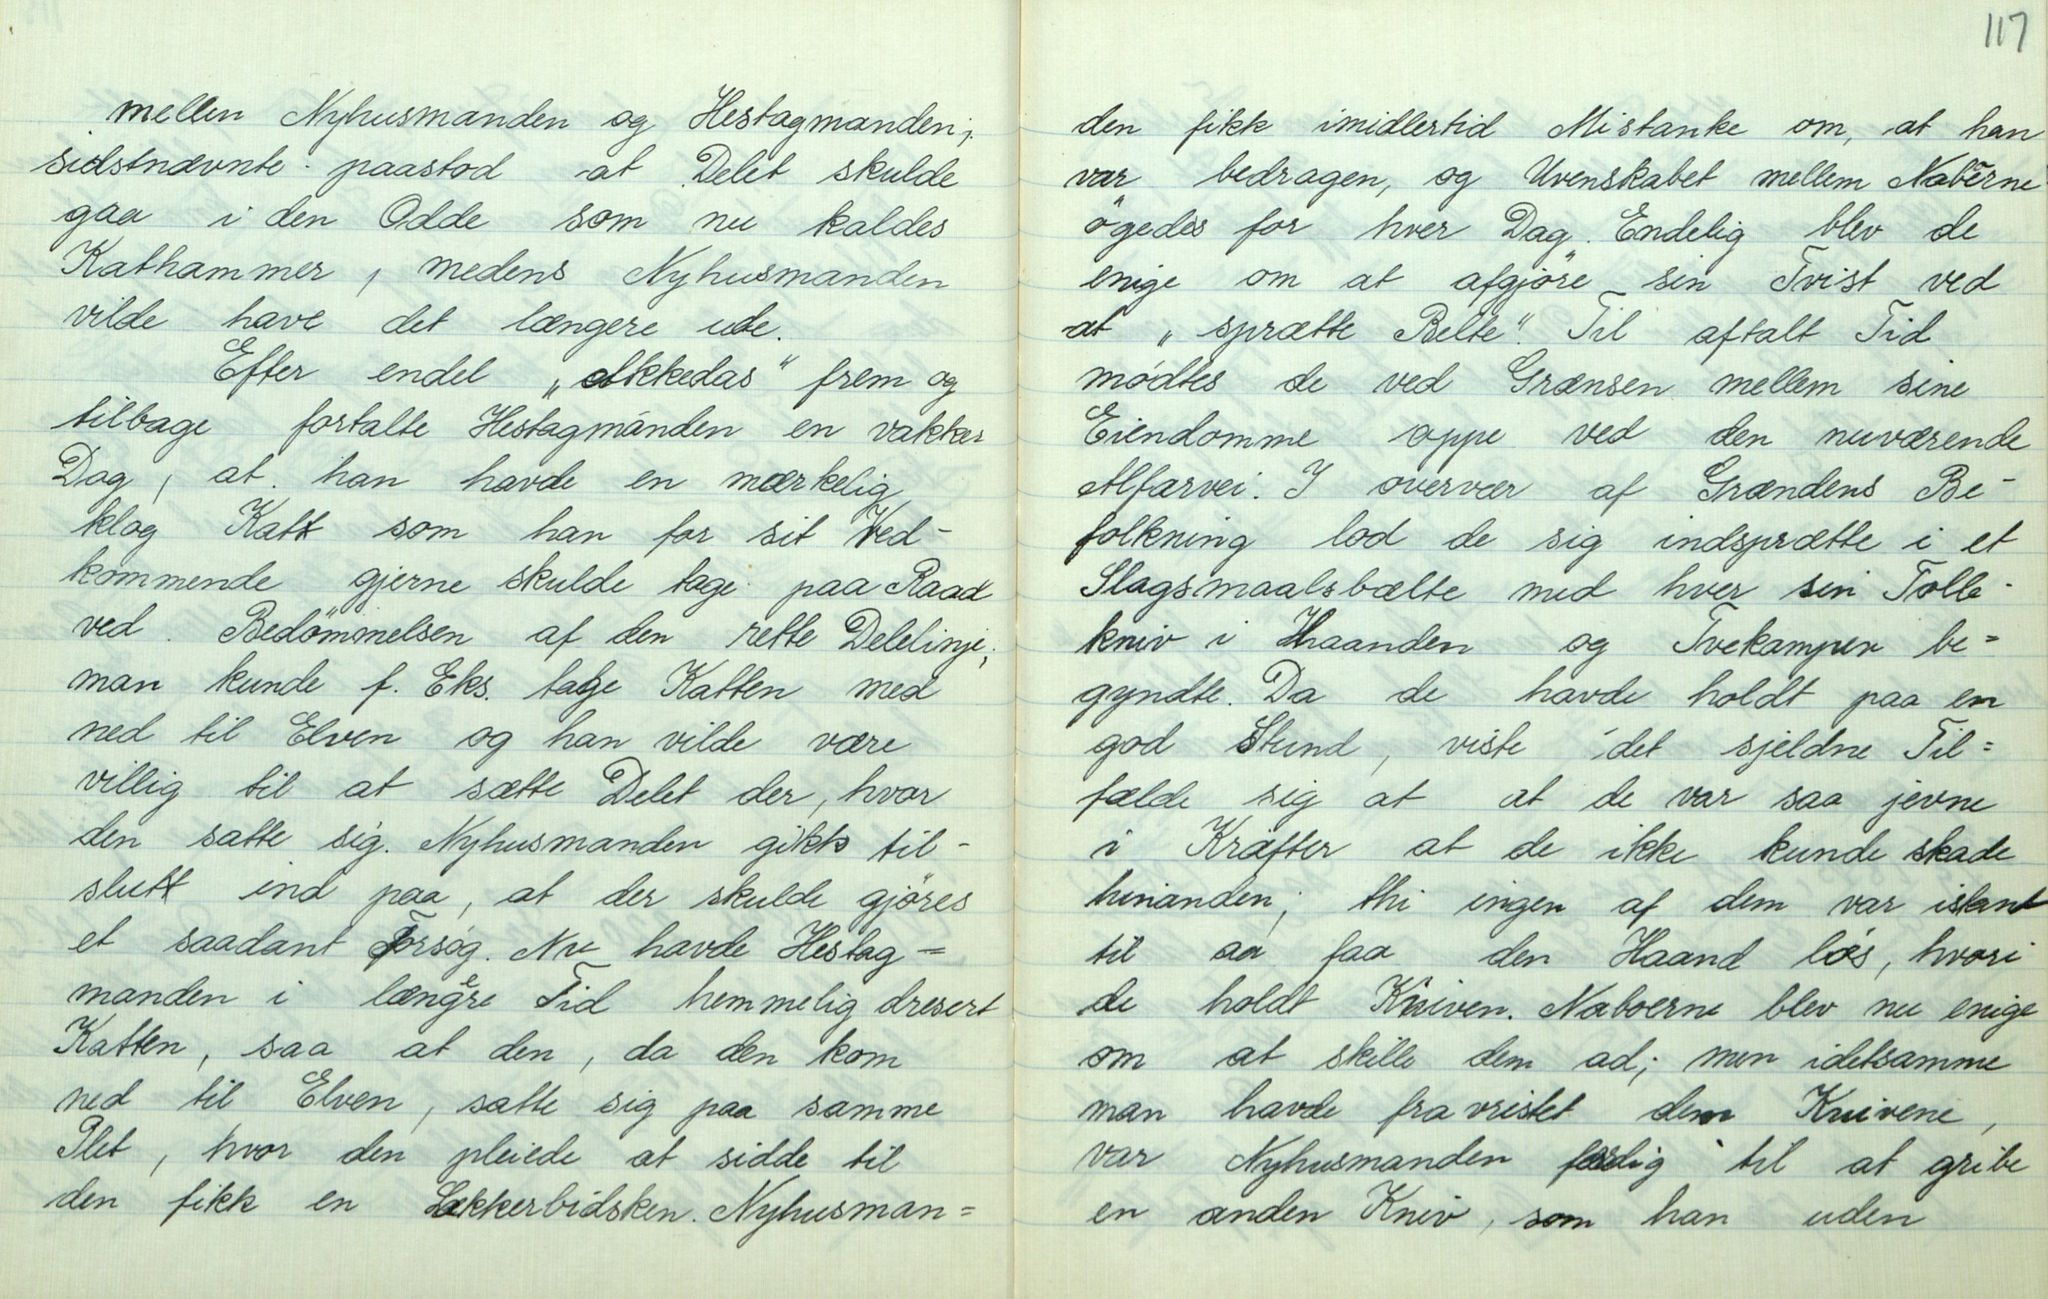 mellen Nyhusmanden og Hestagmanden;
sidstnævnte paastod at Delet skulde
gaa i den Odde som nu kaldes
Kathammer, medens Nyhusmanden
vilde have det længere ude.
Efter endel „Akkedas" frem og
tilbage fortalte Hestagmanden en vakker
Dag, at han havde en mærkelig
klog Katt som han for sit Ved-
kommende gjerne skulde tage paa Raad
ved Bedömmelsen af den rette Delelinje;
man kunde f. Eks. tage Katten med
ned til Elven og han vilde være
villig til at sætte Delet der, hvor
den satte sig. Nyhusmanden gikk til-
slutt ind paa, at der skulde gjöres
et saadant Forsøg. Nu havde Hestag=
manden i længere Tid hemmelig dresert
Katten, saa at den, da den kom
ned til Elven, satte sig paa samme
Plet, hvor den pleiede at sidde til
den fikk en Lækkerbidsken. Nyhusman=
117
den fikk imidlertid Mistanke om, at han
var bedragen, og Uvenskabet mellem Naboerne
ögedes for hver Dag. Endelig blev de
enige om at afgjöre sin Tvist ved
at „sprætte Belte". Til aftalt Tid
mödtes de ved Grænsen mellem sine
Eiendomme oppe ved den nuværende
Alfarvei. I overvær af Grændens Be-
folkning lod de sig indsprætte i et
Slagsmaalsbælte med hver sin Tolle-
kniv i Haanden og Tvekampen be=
gyndte. Da de havde holdt paa en
god Stund, viste det sjeldne Til=
fælde sig at at de var saa jevne
i Kræfter at de ikke kunde skade
hinanden; thi ingen af dem var istand
til aa faa den Haand løs, hvori
de holdt Kniven. Naboerne blev nu enige
om at skille dem ad; men idetsamme
man havde fravristet dem Knivene,
var Nyhusmanden færdig til at gribe
en anden Kniv, som han uden